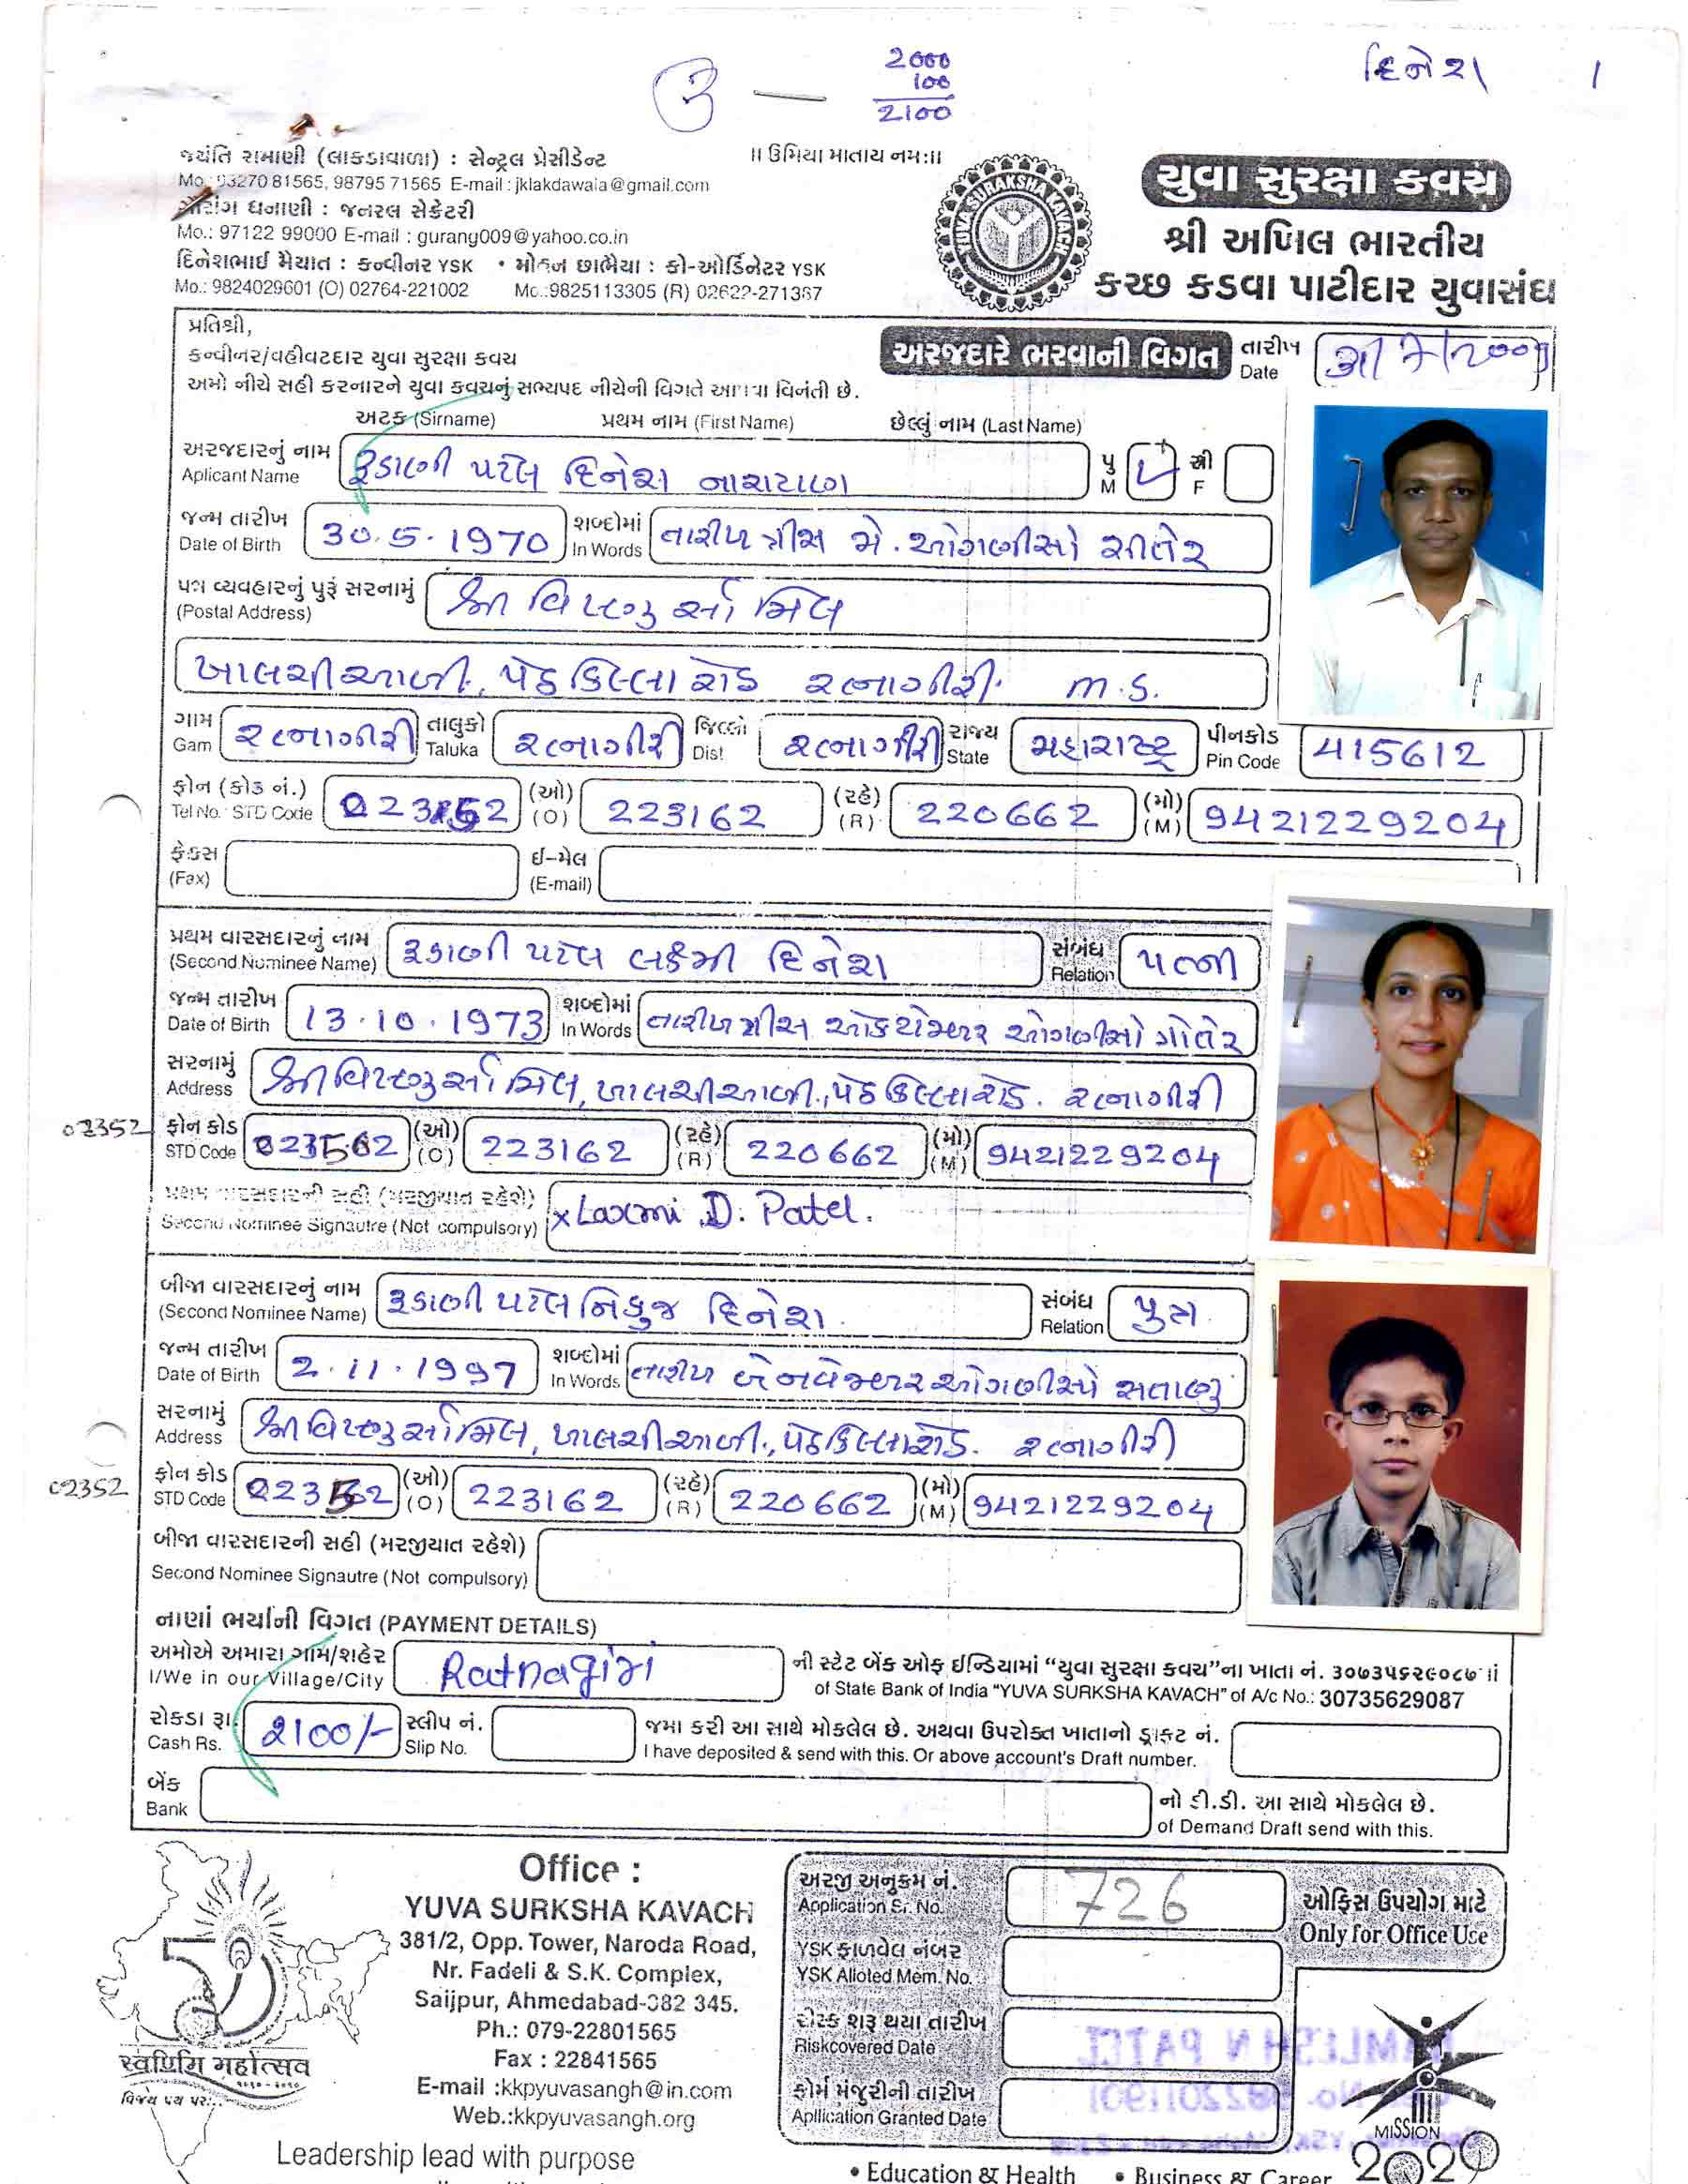 3 — 2000
100
2100
દિનેશ 1
જયંતિ રામાણી (લાકડાવાળા) : સેન્ટ્રલ પ્રેસીડેન્ટ
Mo.: 93270 81565, 98795 71565 E-mail : jklakdawala@gmail.com
ધનાણી : જનરલ સેક્રેટરી
Mo.: 97122 99000 E-mail : gurang009@yahoo.co.in
દિનેશભાઈ મૈયાત : કન્વીનર YSK • મોહન છાભૈયા : કો-ઓર્ડિનેટર YSK
Mo.: 9824029601 (O) 02764-221002 Mo.:9825113305 (R) 02622-271367
॥ ઉમિયા માતાય નમઃ॥
YUVA SURAKSHA KAVACH
યુવા સુરક્ષા કવચ
શ્રી અખિલ ભારતીય
કચ્છ કડવા પાટીદાર યુવાસંઘ
પ્રતિશ્રી,
કન્વીનર/વહીવટદાર યુવા સુરક્ષા કવચ
અમો નીચે સહી કરનારને યુવા કવચનું સભ્યપદ નીચેની વિગતે આપવા વિનંતી છે.
અરજદારે ભરવાની વિગત
તારીખ
Date /2009
અટક (Sirname) પ્રથમ નામ (First Name) છેલ્લું નામ (Last Name)
અરજદારનું નામ
Aplicant Name રૂડાણી પટેલ દિનેશ નારાયણ પુ M સ્ત્રી F
જન્મ તારીખ
Date of Birth 30.5.1970 શબ્દોમાં In Words તારીખ ત્રીસ મે. ઓગણીસો સીતેર
પત્ર વ્યવહારનું પુરૂં સરનામું
(Postal Address) શ્રી વિષ્ણુ સૉ મિલ
ખાલચીઆળી, પેઠ કિલ્લા રોડ રત્નાગીરી. m.s.
ગામ Gam રત્નાગીરી તાલુકો Taluka રત્નાગીરી જિલ્લો Dist રત્નાગીરી રાજ્ય State મહારાષ્ટ્ર પીનકોડ Pin Code 415612
ફોન (કોડ નં.)
Tel No. STD Code (ઓ) (O) 223162 (રહે) (R) 220662 (મો) (M) 9421229204
ફેક્સ
(Fax) ઈ-મેલ (E-mail)
પ્રથમ વારસદારનું નામ
(Second Nominee Name) રૂડાણી પટેલ લક્ષ્મી દિનેશ સંબંધ Relation પત્ની
જન્મ તારીખ
Date of Birth 13.10.1973 શબ્દોમાં In Words ઓકટોમ્બર ઓગણીસો
સરનામું
Address શ્રી વિષ્ણુ સૉ મિલ, ખાલચીઆળી, પેઠ કિલ્લા રોડ. રત્નાગીરી
02352 ફોન કોડ
STD Code (ઓ) (O) 223162 (રહે) (R) 220662 (મો) (M) 9421229204
પ્રથમ વારસદારની સહી (મરજીયાત રહેશે)
Second Nominee Signautre (Not compulsory) x Laxmi D. Patel.
બીજા વારસદારનું નામ
(Second Nominee Name) રૂડાણી પટેલ નિકુજ દિનેશ. સંબંધ Relation પુત્ર
જન્મ તારીખ
Date of Birth 2.11.1997 શબ્દોમાં In Words તારીખ બે નવેમ્બર ઓગણીસો સતાણું
સરનામું
Address શ્રી વિષ્ણુ સૉ મિલ, ખાલચીઆળી, પેઠ કિલ્લા રોડ. રત્નાગીરી
02352 ફોન કોડ
STD Code (ઓ) (O) 223162 (રહે) (R) 220662 (મો) (M) 9421229204
બીજા વારસદારની સહી (મરજીયાત રહેશે)
Second Nominee Signautre (Not compulsory)
નાણાં ભર્યાની વિગત (PAYMENT DETAILS)
અમોએ અમારા ગામ/શહેર
I/We in our Village/City Ratnagiri ની સ્ટેટ બેંક ઓફ ઈન્ડિયામાં “યુવા સુરક્ષા કવચ”ના ખાતા નં. ૩૦૭૩૫૬૨૯૦૮૭ માં
of State Bank of India "YUVA SURKSHA KAVACH" of A/c No.: 30735629087
રોકડા રૂા.
Cash Rs. 2100/- સ્લીપ નં. Slip No. જમા કરી આ સાથે મોકલેલ છે. અથવા ઉપરોક્ત ખાતાનો ડ્રાફ્ટ નં.
I have deposited & send with this. Or above account's Draft number.
બેંક
Bank નો ડી.ડી. આ સાથે મોકલેલ છે.
of Demand Draft send with this.
Office :
YUVA SURKSHA KAVACH
381/2, Opp. Tower, Naroda Road,
Nr. Fadeli & S.K. Complex,
Saijpur, Ahmedabad-382 345.
Ph.: 079-22801565
Fax : 22841565
E-mail :kkpyuvasangh@in.com
Web.:kkpyuvasangh.org
Leadership lead with purpose
50
સ્વર્ણિમ મહોત્સવ
વિજય પથ પર...
અરજી અનુક્રમ નં.
Application Sr. No. 726
ઓફિસ ઉપયોગ માટે
Only for Office Use
YSK ફાળવેલ નંબર
YSK Alloted Mem. No.
રીસ્ક શરૂ થયા તારીખ
Riskcovered Date
ફોર્મ મંજુરીની તારીખ
Apllication Granted Date
MISSION
2020
• Education & Health • Business & Career